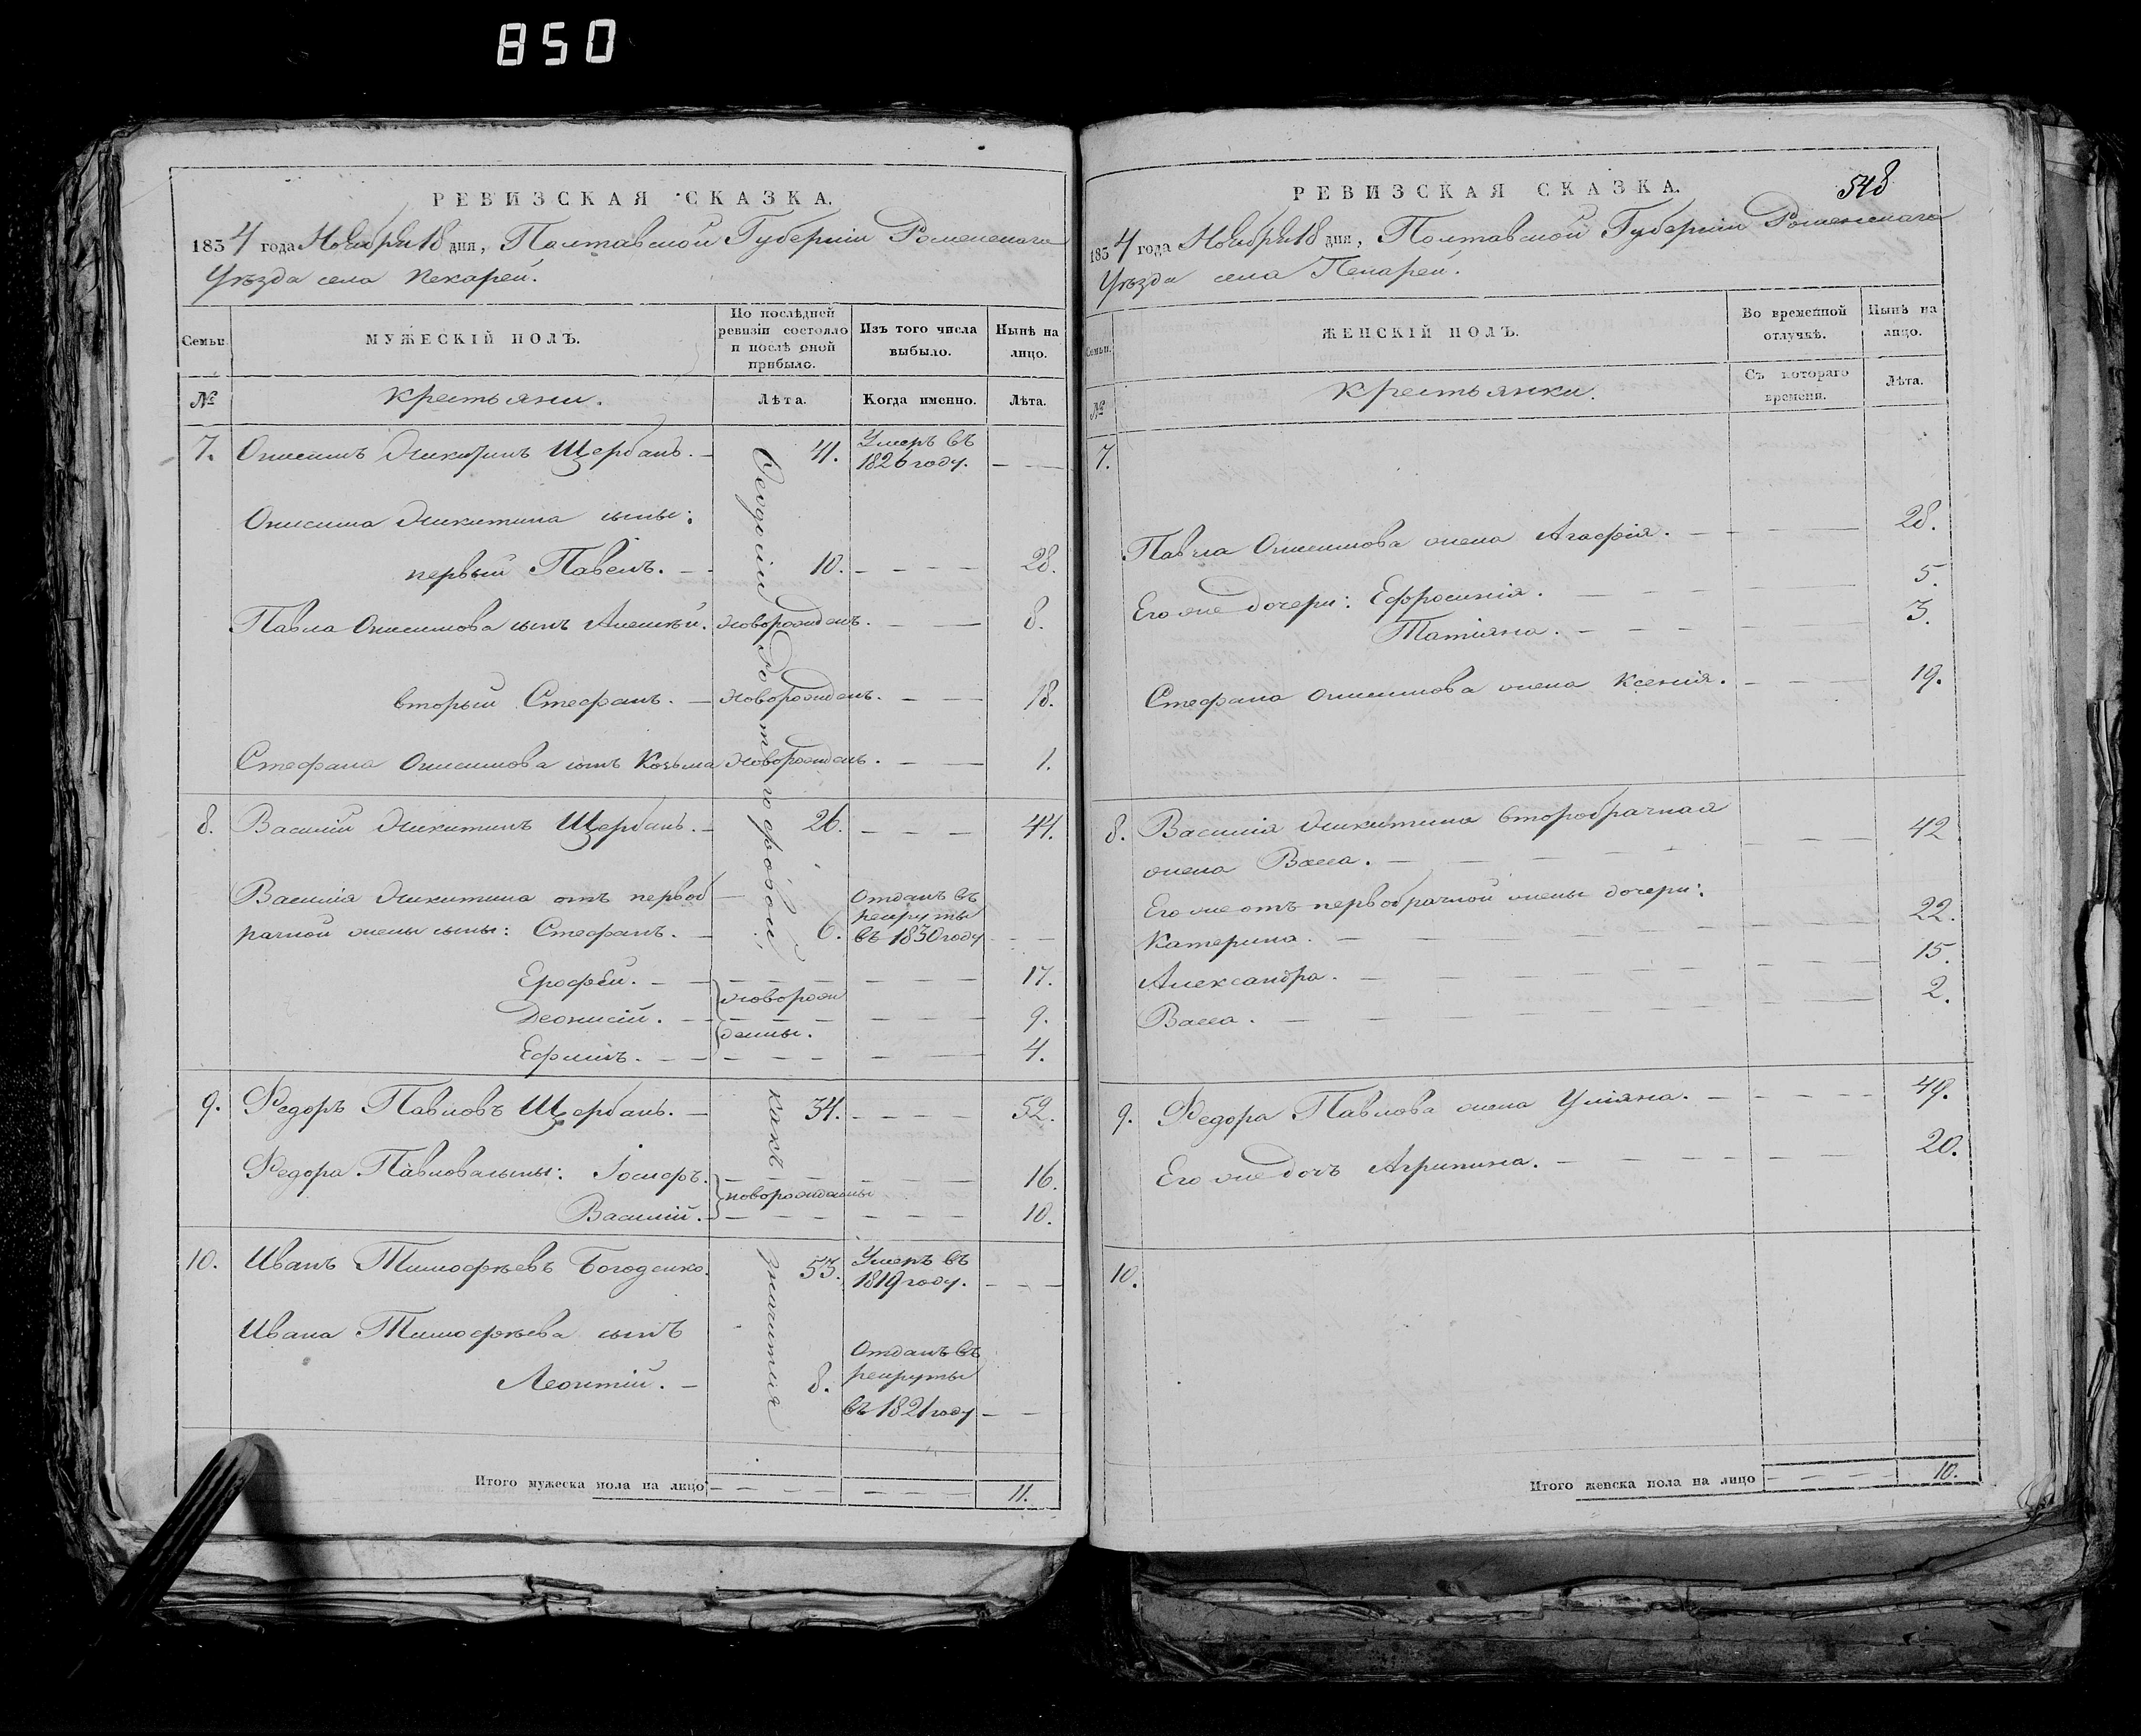 850
РЕВИЗСКАЯ СКАЗКА.
1834 года Ноября 18 дня, Полтавской Губерніи Роменскаго
Уѣзда села Пекарей.
Семьи.
МУЖЕСКІЙ ПОЛЪ.
По послѣдней ревизіи состояло и послѣ оной прибыло.
Изъ того числа выбыло.
Нынѣ на лицо.
№
Крестьяни.
Лѣта.
Когда именно.
Лѣта.
7. Онисимъ Никитинъ Щербань. 41. Умеръ въ 1826 году.
Онисима Никитина сыны:
первый Павелъ. 10. 28.
Павла Онисимова сынъ Алексѣй. Новорожденъ. 8.
вторый Стефанъ. Новорожденъ. 18.
Стефана Онисимова сынъ Козьма Новорожденъ. 1.
8. Василий Никитинъ Щербань. 26. 44.
Василія Никитина отъ первоб
рачной жены сыны: Стефанъ. 6. Отданъ въ рекруты въ 1830 году
Ерофѣй. 17.
Деонисій. новорож 9.
Ефимъ. денны. 4.
9. Федоръ Павловъ Щербань. 34. 52.
Федора Павлова сыны: Іосифъ. 16.
новорожденны
Василій. 10.
10. Иванъ Тимофѣевъ Богоденко. 53. Умеръ въ 1819 году.
Ивана Тимофѣева сынъ
Леонтій. 8. Отданъ въ рекруты въ 1821 году
какъ
значится
Итого мужеска пола на лицо 11.
РЕВИЗСКАЯ СКАЗКА.
548
1834 года Ноября 18 дня, Полтавской Губерніи Роменскаго
Уѣзда села Пекарей.
Семьи.
ЖЕНСКІЙ ПОЛЪ.
Во временной отлучкѣ.
Нынѣ на лицо.
№
Крестьянки.
Съ котораго времени.
Лѣта.
7.
Павла Онисимова жена Агафія. 28.
Его же дочери: Ефросинія. 5.
Татіяна. 3.
Стефана Онисимова жена Ксенія. 19.
8. Василія Никитина второбрачная
жена Васса. 42
Его же отъ первобрачной жены дочери:
Катерина. 22.
Александра. 15.
Васса. 2.
9. Федора Павлова жена Уліяна. 49.
Его же дочь Агрипина. 20.
10.
Итого женска пола на лицо 10.